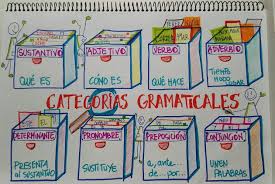 SUSTANTIVO
ADJETIVO
VERBO
ADVERBIO
QUÉ ES
CÓMO ES
QUÉ HACE
TIEMPO
MODO
LUGAR
CATEGORÍAS GRAMATICALES
DETERMINANTE
PRONOMBRE
PREPOSICIÓN
CONJUNCIÓN
PRESENTA
al SUSTANTIVO
SUSTITUYE
a, ante...
de... por...
UNEN
PALABRAS